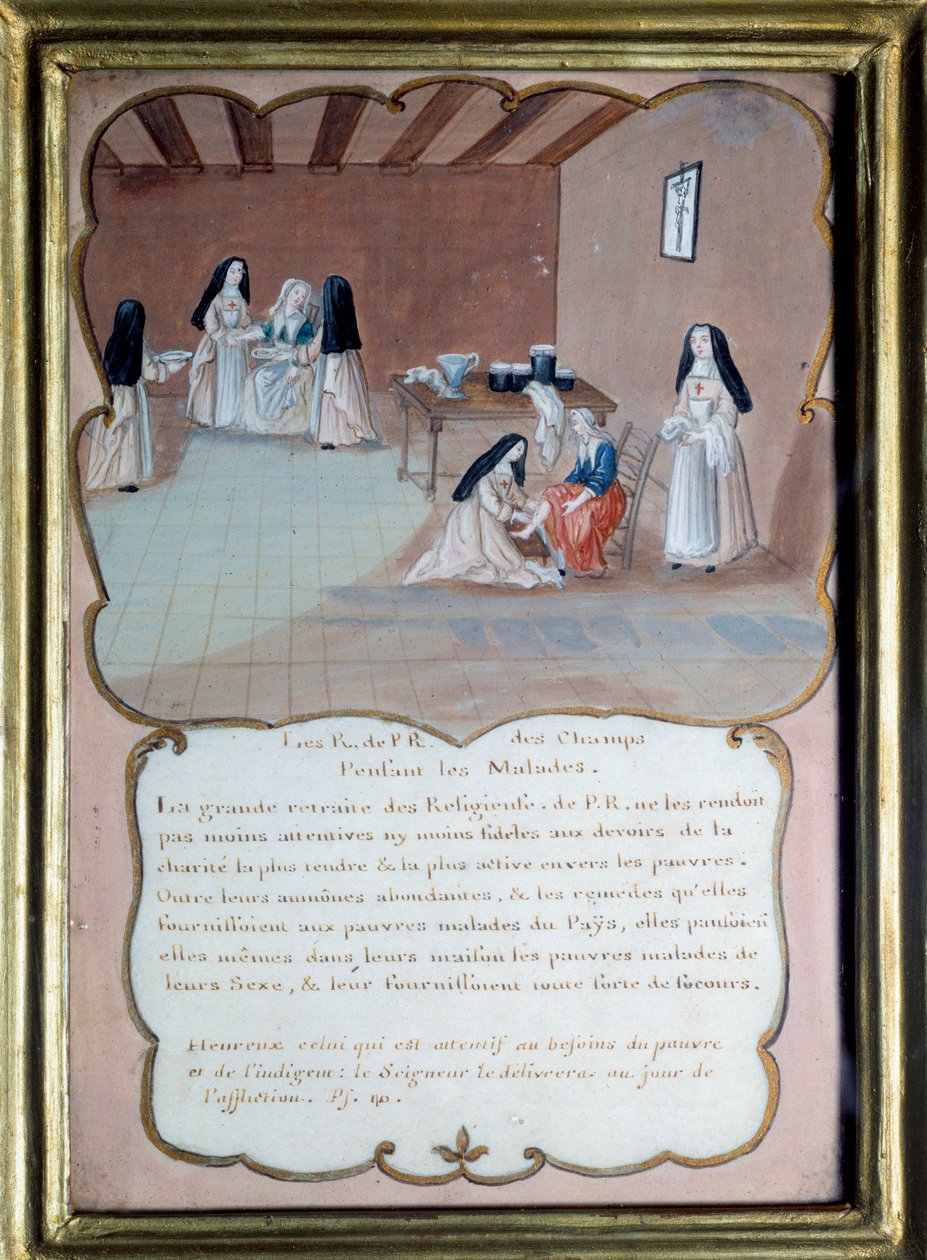 Les R. de P. R. des Champs
Penſant les Malades.
La grande retraite des Religieuſe. de P. R. ne les rendoit
pas moins attentives ny moins fidéles aux devoirs de la
charité la plus tendre & la plus active envers les pauvres:
Outre leurs aumônes abondantes, & les remedes qu'elles
fourniſſoient aux pauvres malades du Paÿs, elles panſoient
elles mêmes dans leurs maiſon les pauvres malades de
leurs Sexe, & leur fourniſſoient toute ſorte de ſecours.
Heureux celui qui est attentif au beſoins du pauvre
et de l'indigent: le Seigneur le délivrera au jour de
l'affliction. Pſ. 40.